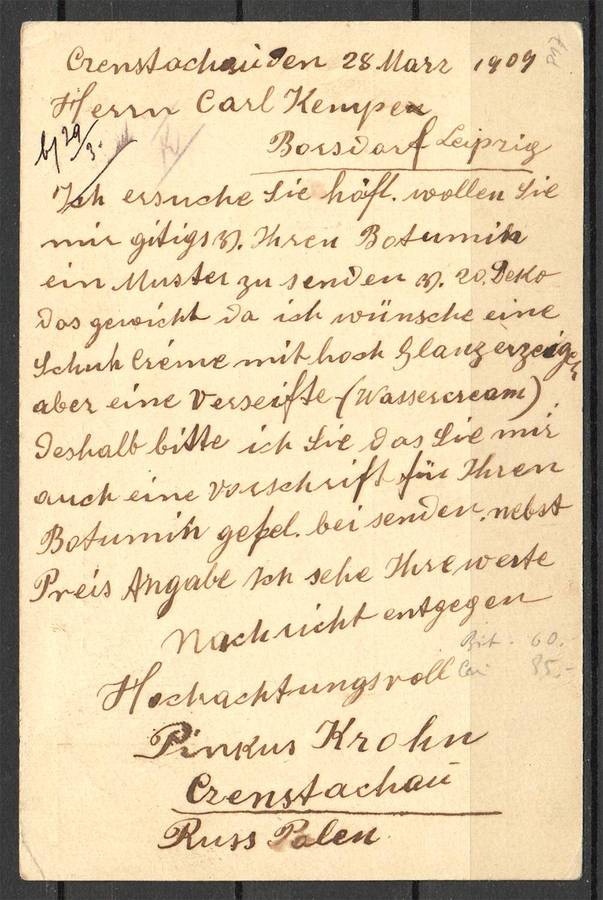 Crenstochau den 28 Marz 1909
Herrn Carl Kempe
Borsdorf Leipzig
b/ 29/3.
Ich ersuche Sie höfl. wollen Sie
mir gitigs v. Ihren Botumin
ein Muster zu senden v. 20. Deko
das gewicht da ich wünsche eine
Schuh Créme mit hoch Glanz erzeigen
aber eine Verseifte (Wassercream).
deshalb bitte ich Sie das Sie mir
auch eine vorschrift für Ihren
Botumin gefel. bei senden. nebst
Preis Angabe Ich sehe Ihre werte
Nachricht entgegen
Bit. 60.-
Hochachtungsvoll
Car 85.-
Pinkus Krohn
Crenstachau
Russ Polen